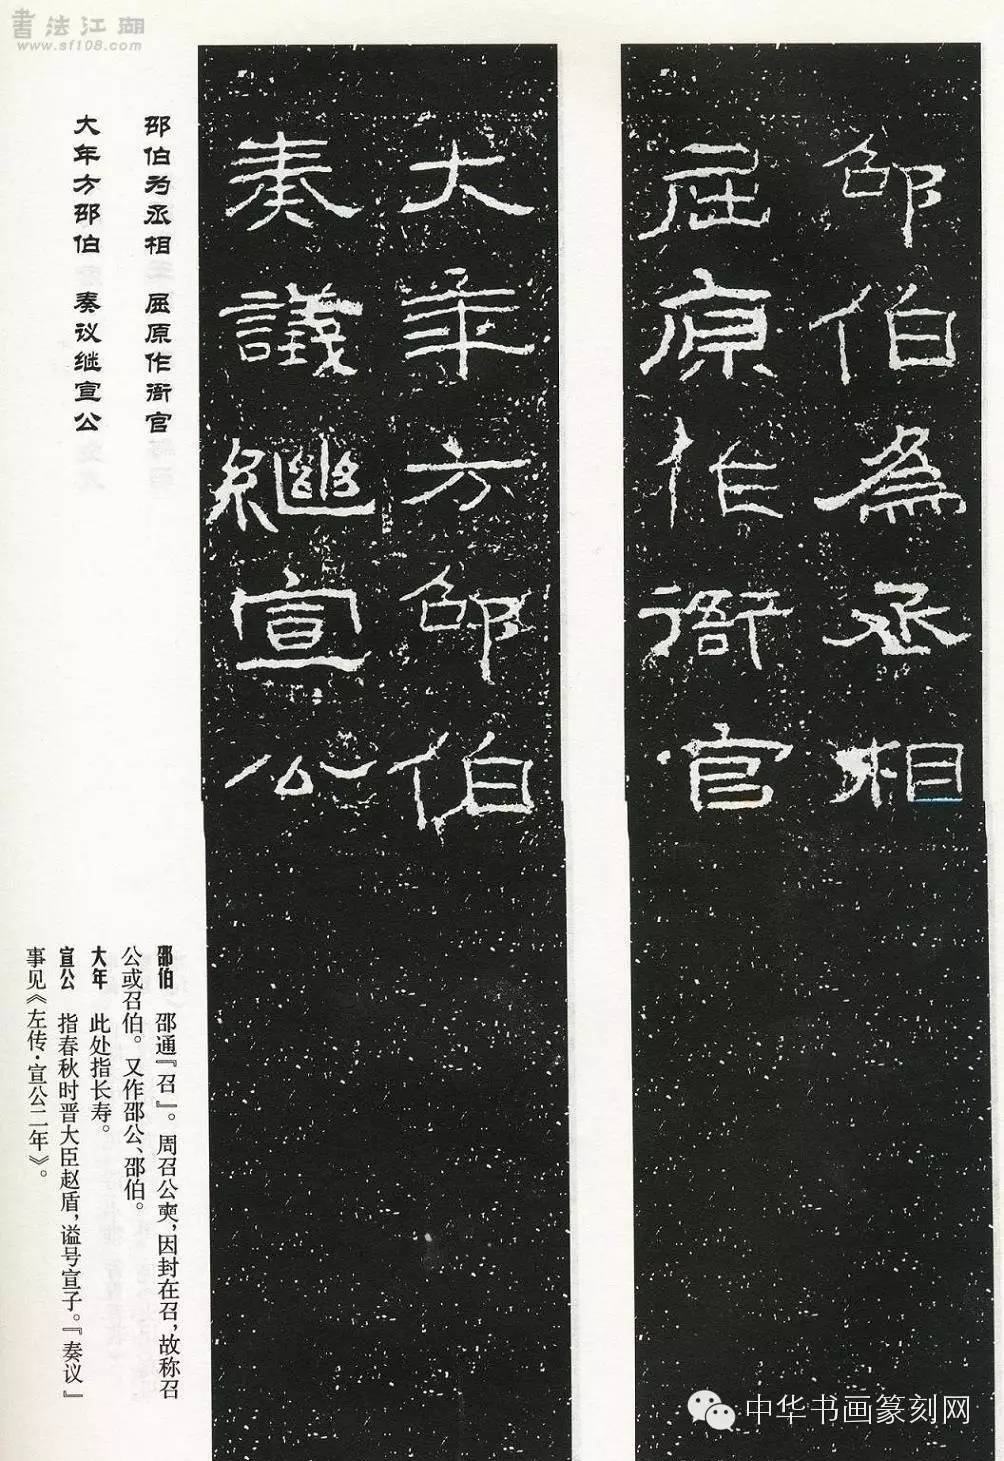 書法江湖
www.sf108.com
邵伯為丞相
屈原作衙官
大年方邵伯
奏議繼宣公
邵伯为丞相 屈原作衙官
大年方邵伯 奏议继宣公
邵伯 邵通『召』。周召公奭，因封在召，故称召
公或召伯。又作邵公、邵伯。
大年 此处指长寿。
宣公 指春秋时晋大臣赵盾，谥号宣子。『奏议』
事见《左传·宣公二年》。
中华书画篆刻网